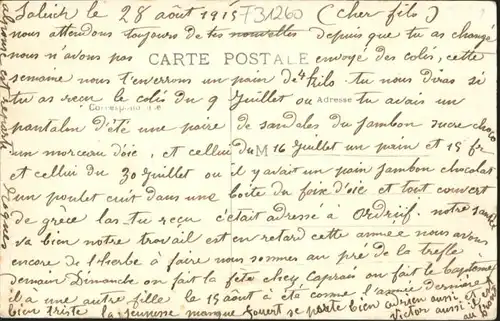 Saluich le 28 août 1915 T31260 (cher fils)
nous attendons toujours de tes nouvelles depuis que tu as change
nous n'avons pas CARTE POSTALE envoyé des colis, cette
semaine nous t'enverrons un pain de 4 kilo. tu nous diras si
tu as reçu le colis du 9 Juillet ou tu avais un
Correspondance Adresse
pantalon d'été une paire de sandales du jambon sucre choco
un morceau d'oie, et cellui du 16 Juillet un pain et 15 fr
et cellui du 30 Juillet ou il y avait un pain jambon chocolat
un poulet cuit dans une boite du foix d'oie et tout couvert
de grèce las tu reçu c'était adresse a Ordrüf. notre santé
va bien notre travail est en retard cette année nous avons
encore de l'herbe à faire nous sommes au pré de la trefle
demain Dimanche on fait la fête chez Caprais on fait le Baptême
il a une autre fille le 15 août à été comme l'année dernière
bien triste la jeunesse manque fouert se porte bien adrien aussi et
Victor aussi il est
au